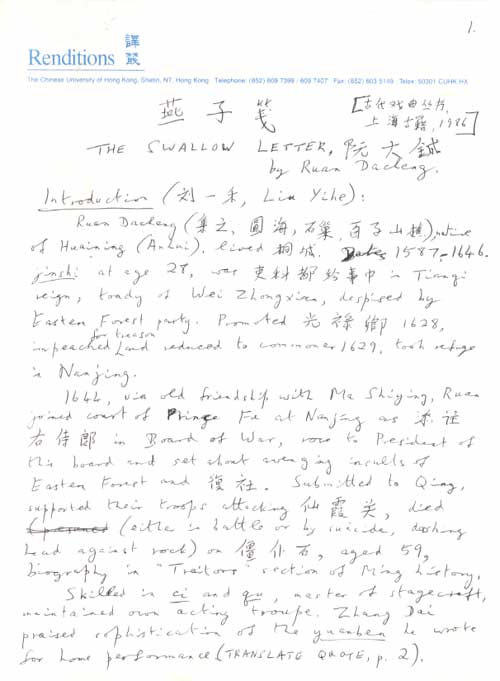 1.
譯叢
Renditions
The Chinese University of Hong Kong, Shatin, NT, Hong Kong Telephone: (852) 609 7399 / 609 7407 Fax: (852) 603 5149 Telex: 50301 CUHK HX
燕子箋
[古代戏曲丛书,
上海古籍, 1986]
THE SWALLOW LETTER, 阮大鋮
by Ruan Dacheng.
Introduction (刘一禾, Liu Yihe):
Ruan Dacheng (集之, 圓海, 石巢, 百子山樵) native
of Huaining (Anhui), lived 桐城. Dates 1587-1646.
jinshi at age 28, was 吏科都給事中 in Tianqi
reign, toady of Wei Zhongxian, despised by
Eastern Forest party. Promoted 光祿卿 1628,
impeached for treason and reduced to commoner 1629, took refuge
in Nanjing.
1644, via old friendship with Ma Shiying, Ruan
joined court of Prince Fu at Nanjing as 添注
右侍郎 in Board of War, rose to President of
this board and set about avenging insults of
Eastern Forest and 復社. Submitted to Qing,
supported their troops attacking 仙霞关, died
(either in battle or by suicide, dashing
head against rock) on 僵仆石, aged 59,
biography in "Traitors" section of Ming history.
Skilled in ci and qu, master of stagecraft,
maintained own acting troupe. Zhang Dai
praised sophistication of the yuanben he wrote
for home performance (TRANSLATE QUOTE, p. 2).